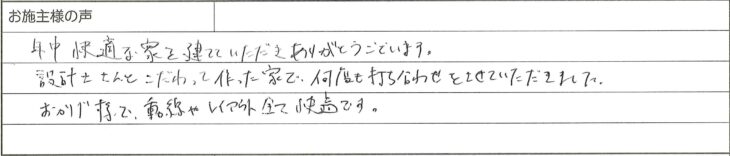 お施主様の声
年中快適な家を建てていただきありがとうございます。
設計士さんとこだわって作った家で、何度も打ち合わせをさせていただきました。
おかげ様で、動線やレイアウト全て快適です。